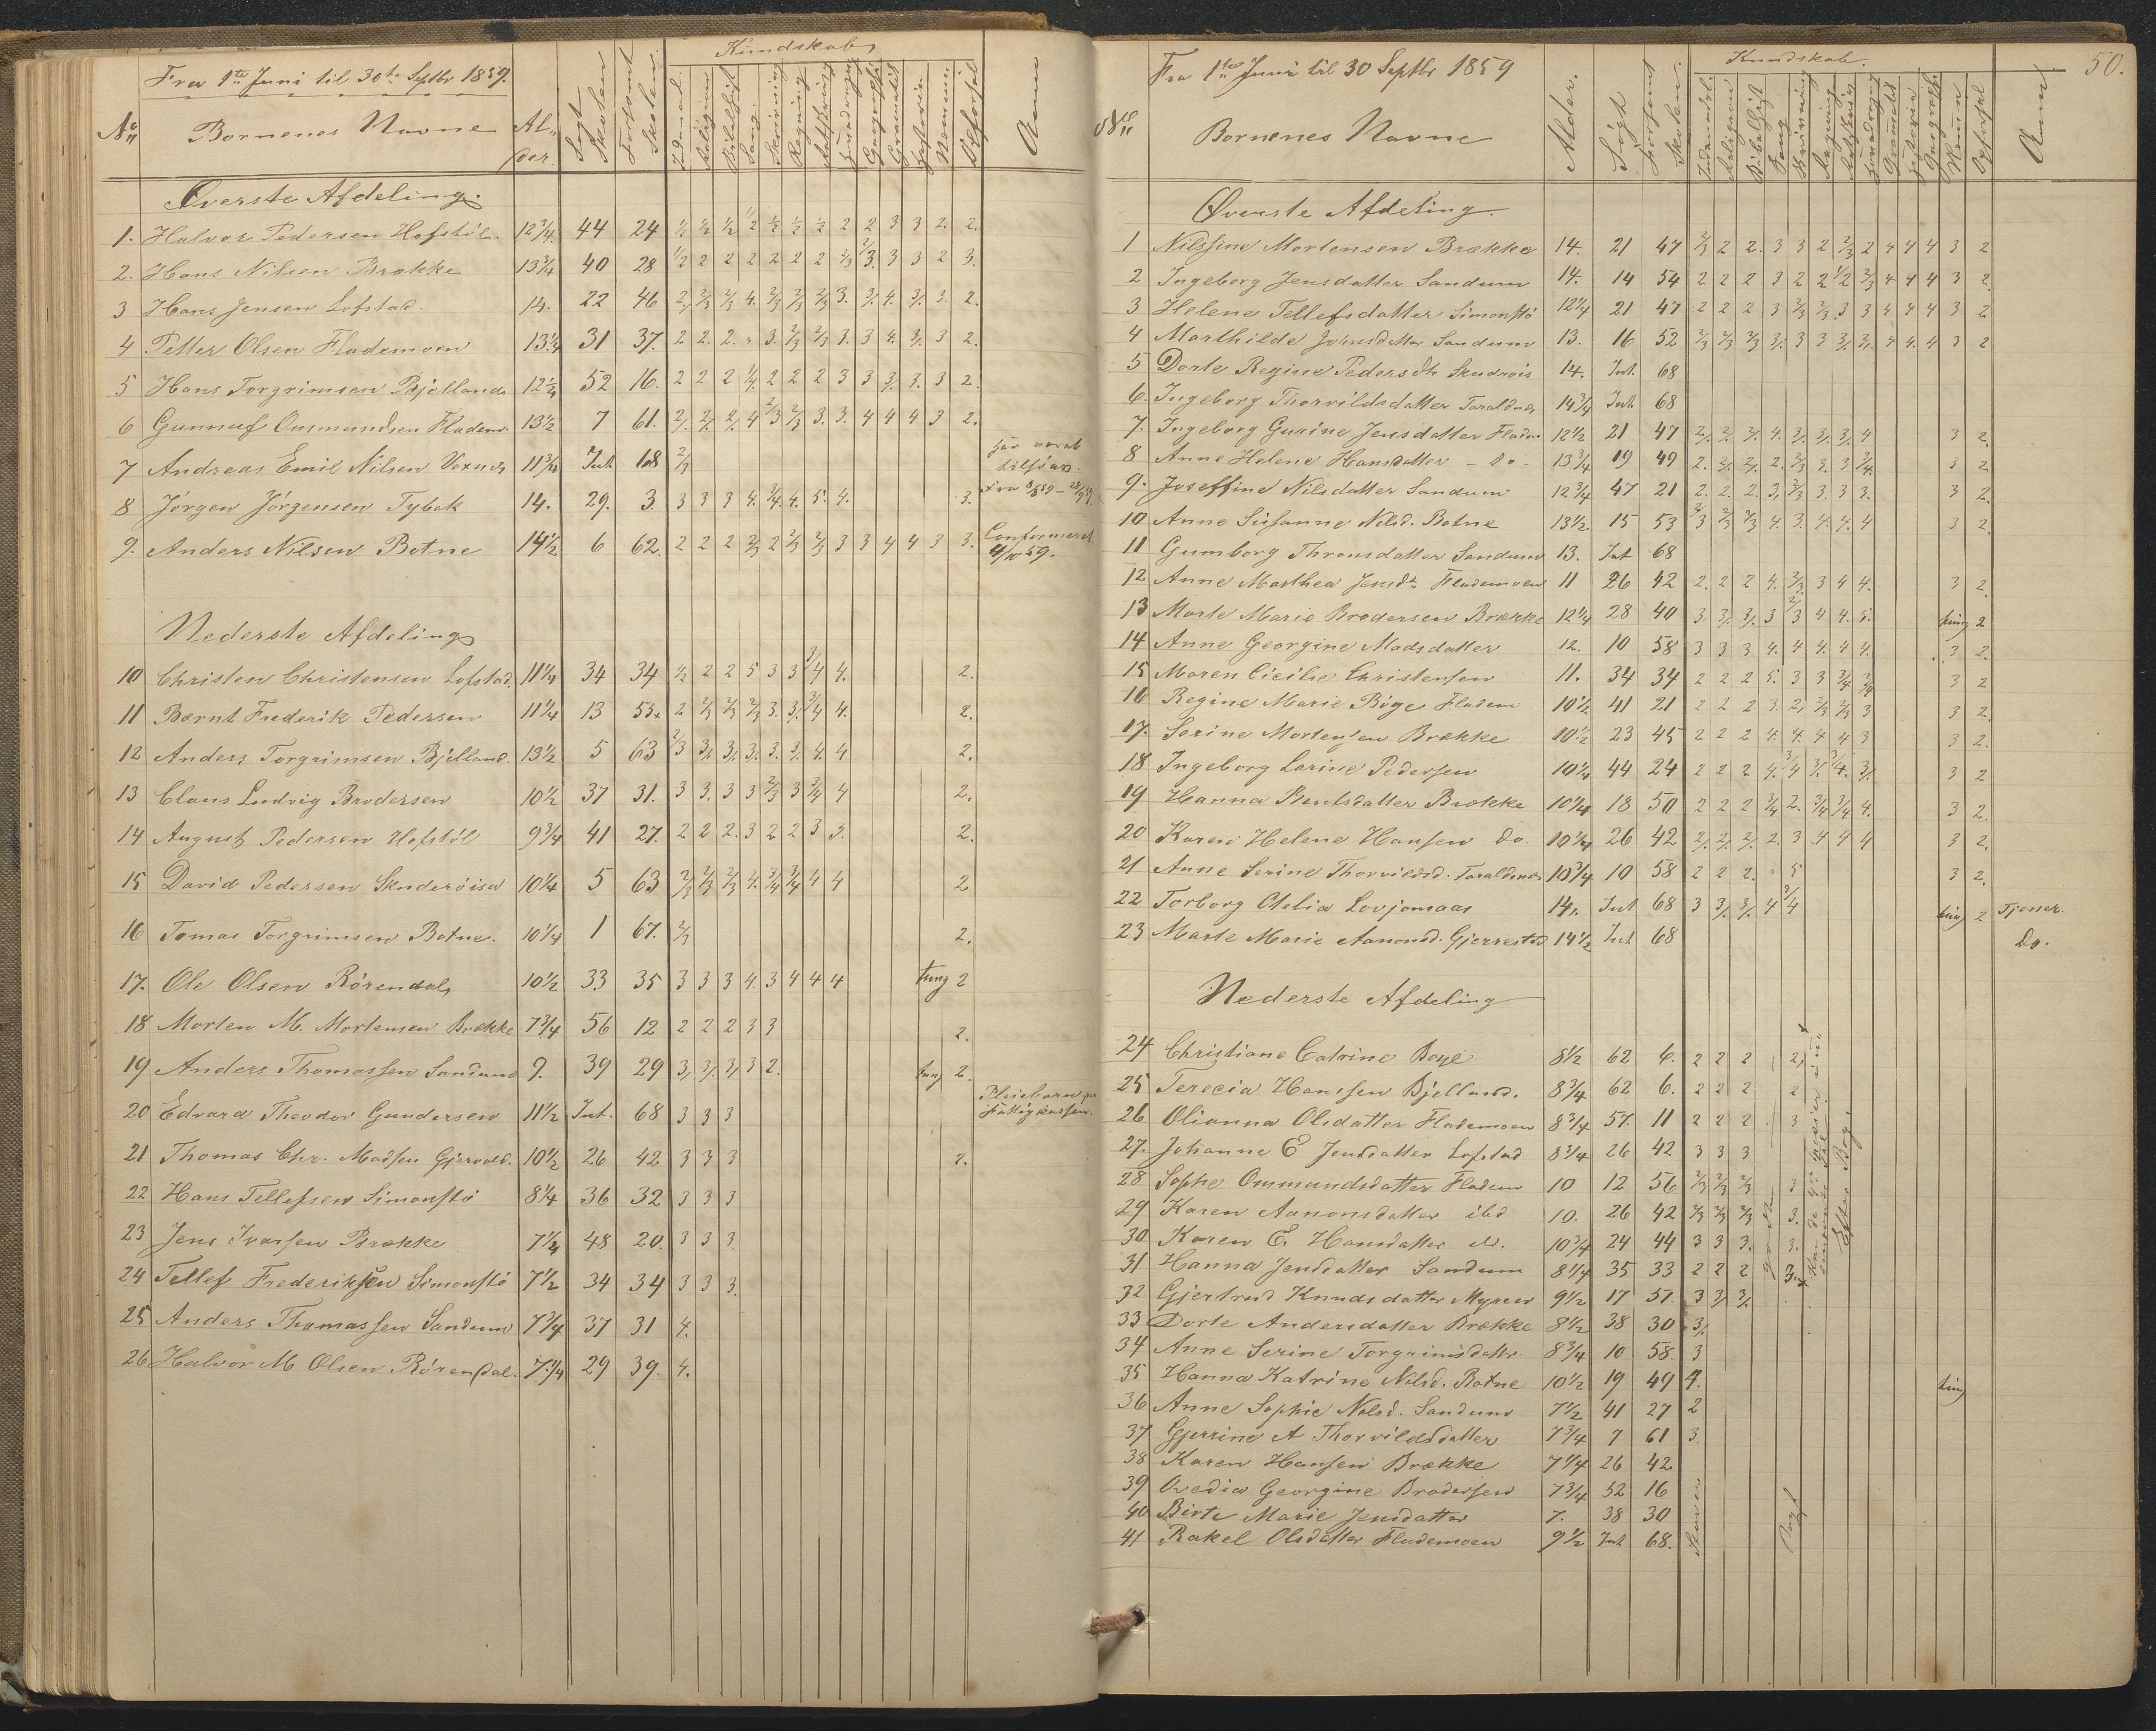 Kundskab
Fra 1ste Juni til 30te Septbr 1859.
No Børnenes Navne Alder. Søgt Skolen Forsømt Skolen Indenadl. Religion Bibelhist Sang Skrivning Regning Retskrivg Geographi Gramatik Historie Nemme Opførsel Anm
Øverste Afdeling.
1. Halvor Pedersen Hofstøl. 12 3/4. 44 24 1/2 1/2 1/2 1/2 1/2 1/2 1/2 2 2 3 3 2. 2.
2. Hans Nilsen Brække 13 3/4 40 28 1/2 2 2 2 2 2 2 2/3 2/3. 3 3 2 3.
3 Hans Jensen Lofstad. 14. 22 46 2, 2/3 2/3 4. 2/3 2/3 2/3 3. 3/. 4. 3/. 3. 2.
4 Petter Olsen Flademoen 13 1/4 31 37. 2 2. 2. " 3. 2/3 2/3 3. 3 4. 3/. 3 2.
5 Hans Torgrimsen Bjelland 12 1/2 52 16. 2 2 2 1/4. 2 2 2 3 3 3/. 3. 3 2.
6 Gunnuf Ommundsen Fladem. 13 1/2 7 61. 2/. 2/. 2/. 4 2/3 2/3 3. 3. 4 4 4 3 2.
7 Andreas Emil Nilsen 11 3/4 Int 68 2/3 har været tilsøes. Fra
8 Jørgen Jørgensen Tybak 14. 29. 3. 3 3 3 4. 3/4. 4. 5. 4. 3.
9. Anders Nilsen Botne 14 1/2 6 62. 2 2 2 2/3 2 2/3 2/3 3 3 4 4 3 3. Confirmeret 4/10 59.
Nederste Afdeling
10 Christen Christensen Lofstad. 11 1/4 34 34 1/2 2 2 5 3 3 3/4 4. 2.
11 Bernt Frederik Pedersen 11 1/4 13 55. 2 2/3 2/3 2/3 3. 3/. 3/4 4. 2.
12 Anders Torgrimsen Bjelland. 13 1/2 5 63 2/3 3/. 3/. 3. 3. 3/. 4. 4 2.
13 Claus Ludvig Brodersen 10 1/2 37 31. 3 3. 3 3 2/3 3 3/4 4 2.
14 August Pedersen Hofstøl 9 3/4 41 27. 2 2 2. 3 2 2 3 3. 2.
15 David Pedersen Skuderöisa 10 1/4 5 63 2/3 2/3 2/3 4. 3/4 3/4 4 4 2
16 Tomas Torgrimsen Botne. 10 1/4 1 67. 2/3 2.
17. Ole Olsen Rörendal, 10 1/2 33 35 3 3 3 4. 3 4 4 4 tung 2
18 Morten M. Mortensen Brække 7 3/4 56 12 2 2 2 3 3 2.
19 Anders Thomassen Sandum 9. 39 29 3, 3/. 3/. 3 2. tung 2.
20 Edvard Theodor Gundersen 11 1/2 Int. 68 3 3 3 Pleiebarn fattigkassen.
21 Thomas Chr. Madsen 10 1/2 26 42 3 3 3 2.
22 Hans Tellefsen Simonstö 8 1/4 36 32 3 3 3
23 Jens Ivarsen Brække 7 1/4 48 20. 3 3 3.
24 Tellef Frederiksen Simonstö 7 1/2 34 34 3 3 3.
25 Anders Thomassen Sandum 7 1/4 37 31 4.
26 Halvor M Olsen Rörendal. 7 1/4 29 39. 4.
50.
Kundskab.
Fra 1ste Juni til 30 Septbr 1859
No Børnenes Navne Alder. Søgt Forsømt Skolen. Indenadl. Religion Bibelhist Sang Skrivning Regning Retskrivg Gramatik Historie Geograph. Nemme Opførsel Anm.
Øverste Afdeling.
1 Nilssine Mortensen Brække 14. 21 47 2/3 2 2. 3 3 2 2/3 2 4 4 4 3 2
2 Ingeborg Jensdatter Sandum 14. 14 54 2 2 2 3 2 2 1/2 2/3 4 4 4 3 2.
3 Helene Tellefsdatter Simonstö 12 1/4 21 47 2 2 2 3 2/3 2/3. 3 3 4 4 4 3. 2
4 Marthilde Johnsdatter Sandum 13. 16 52 2/3 2/3 2/3 3/. 3 3 3/. 3/. 4 4. 4 3 2
5 Dorte Regine Peders dtr 14. Int. 68
6. Ingeborg Thorvildsdatter Taraldsnes 14 3/4 Int 68
7. Ingeborg Gurine Jensdatter Fladem 12 1/2 21 47 2/. 2/. 3/. 4. 3/. 3/. 3/. 4 3 2.
8 Anne Helene Hansdatter - do - 13 3/4 19 49 2. 2/. 2/. 2. 2/3 3. 3 3/4. 3 2
9. Joseffine Nilsdatter Sandum 12 3/4 47 21 2. 2. 2. 3, 2/3 3. 3 3. 3 2.
10 Anne Susanne Nilsd. Botne 13 1/2 15 53 2/3 2/3 2/3 4. 3. 4. 4. 4 3 2.
11 Gumborg Thronsdatter Sandum 13. Int 68
12 Anne Marthea Jensdtr Flademoen 11 26 42 2. 2 2 4. 2/3. 3 4 4. 3 2.
13 Marte Marie Brodersen Brække 12 1/4 28 40 3. 3/. 3/. 3 2/3 4 4. 5. tung 2
14 Anne Georgine Madsdatter 12. 10 58 3 3 3 4. 4 4. 4 4. 3 2.
15 Maren Cicilie Christensen 11. 34 34 2 2 2 5. 3 3 3/4 3/4 3 2
16 Regine Marie Böge Fladem 10 1/2 41 21 2 2 2 3. 2, 2/3 2/3 3 3 2.
17. Serine Mortensen Brække 10 1/2 23 45 2 2 2 4. 4. 4 4 3 3 2.
18 Ingeborg Larine Pedersen 10 1/4 44 24 2 2 2 4. 3/4 3/. 3/4. 3/. 3 2
19 Hanna Bentsdatter Brække 10 1/4 18 50 2 2 2 3/4 2. 3/4 3/4 4. 3 2.
20 Karen Helene Hansen do. 10 1/4 26 42 2/. 2/. 2/. 2. 3 4 4 4 3 2.
21 Anne Serine Thorvildsd. Taraldsnes 10 3/4 10 58 2 2 2. " 5 3 2.
22 Torborg Otelia Lovjomaas 14. Int 68 3 3/. 3/. 4 3/4 tung 2 Tjener.
23 Marte Marie Aanonsd. Gjerrestad 14 1/2 Int 68 Do.
Nederste Afdeling
24 Christiane Catrine Boye 8 1/2 62 6. 2 2 2 2,
25 Terecia Hansen Bjelland. 8 3/4 62 6. 2 2 2 2
26 Olianna Olsdatter Flademoen 8 3/4 57. 11 2 2 2 3
27. Johanne E Jensdatter Lofstad 8 3/4 26 42 3 3 3
28 Sophe Ommundsdatter Fladem 10 12 56 2/3 2/3 2/3 3
29 Karen Aanonsdatter ibd 10. 26 42 2/3 2/3 2/3 3.
30 Karen E. Hansdatter do. 10 3/4 24 44 3 3 3. 3.
31 Hanna Jensdatter Sandum 8 1/4 35 33 2 2 2 3.
32 Gjertrud Knudsdatter Myren 9 1/2 17 51. 3 3/. 3/.
33 Dorte Andersdatter Brække 8 1/2 38 30 3/.
34 Anne Serine Torgrimsdatter 8 3/4 10 58. 3
35 Hanna Katrine Nilsd. Botne 10 1/2 19 49 4. tung
36 Anne Sophie Nilsd. Sandum 7 1/2 41 27 2
37 Gjerrine A Thorvildsdatter 7 3/4 7 61 3.
38 Karen Hansen Brække 7 1/4 26 42
39 Ovedia Georgine Brodersen 7 3/4 52 16
40 Birte Marie Jensdatter 7. 38 30
41 Rakel Olsdatter Flademoen 9 1/2 Int 68.
Efter Bog,